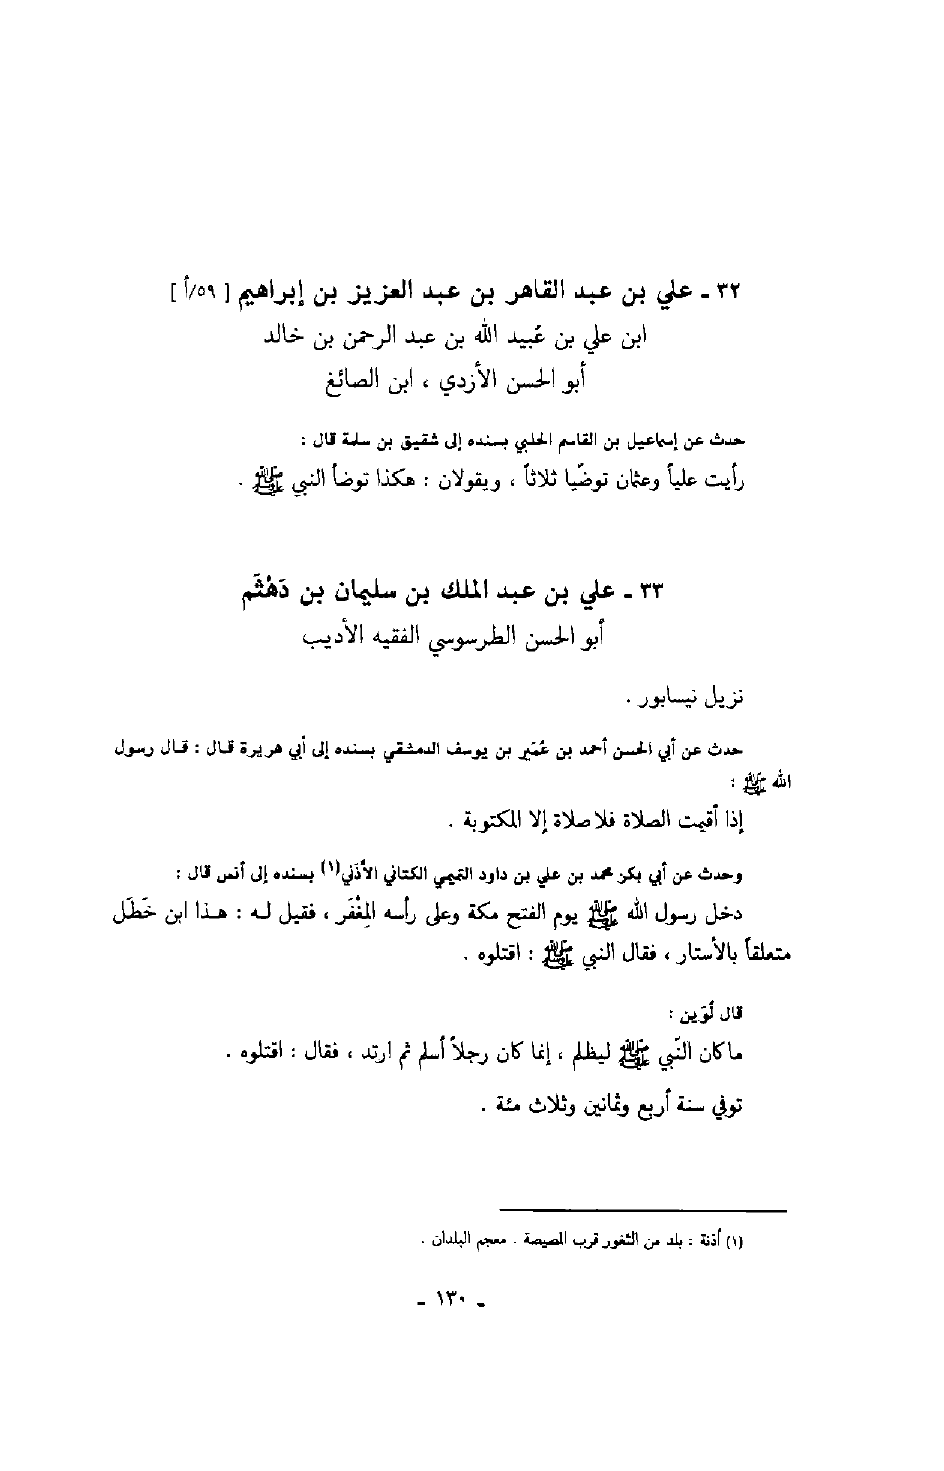 ٣٢ ـ علي بن عبد القاهر بن عبد العزيز بن إبراهيم [ ٥٩/أ ]
ابن علي بن عُبيد الله بن عبد الرحمن بن خالد
أبو الحسن الأزدي ، ابن الصائغ
حدث عن إسماعيل بن القاسم الحلبي بسنده إلى شقيق بن سلمة قال :
رأيت علياً وعثمان توضّيا ثلاثاً ، ويقولان : هكذا توضأ النبي ﷺ .
٣٣ ـ علي بن عبد الملك بن سليمان بن دَهْثَم
أبو الحسن الطرسوسي الفقيه الأديب
نزيل نيسابور .
حدث عن أبي الحسن أحمد بن عُمَير بن يوسف الدمشقي بسنده إلى أبي هريرة قال : قال رسول
الله ﷺ :
إذا أقيمت الصلاة فلا صلاة إلا المكتوبة .
وحدث عن أبي بكر محمد بن علي بن داود التميمي الكتاني الأذَني(١) بسنده إلى أنس قال :
دخل رسول الله ﷺ يوم الفتح مكة وعلى رأسه المِغْفَر ، فقيل له : هذا ابن خَطَل
متعلقاً بالأستار ، فقال النبي ﷺ : اقتلوه .
قال لُوَين :
ماكان النّبي ﷺ ليظلم ، إنما كان رجلاً أسلم ثم ارتد ، فقال : اقتلوه .
توفي سنة أربع وثمانين وثلاث مئة .
(١) أذنة : بلد من الثغور قرب المصيصة . معجم البلدان .
ـ ١٣٠ ـ